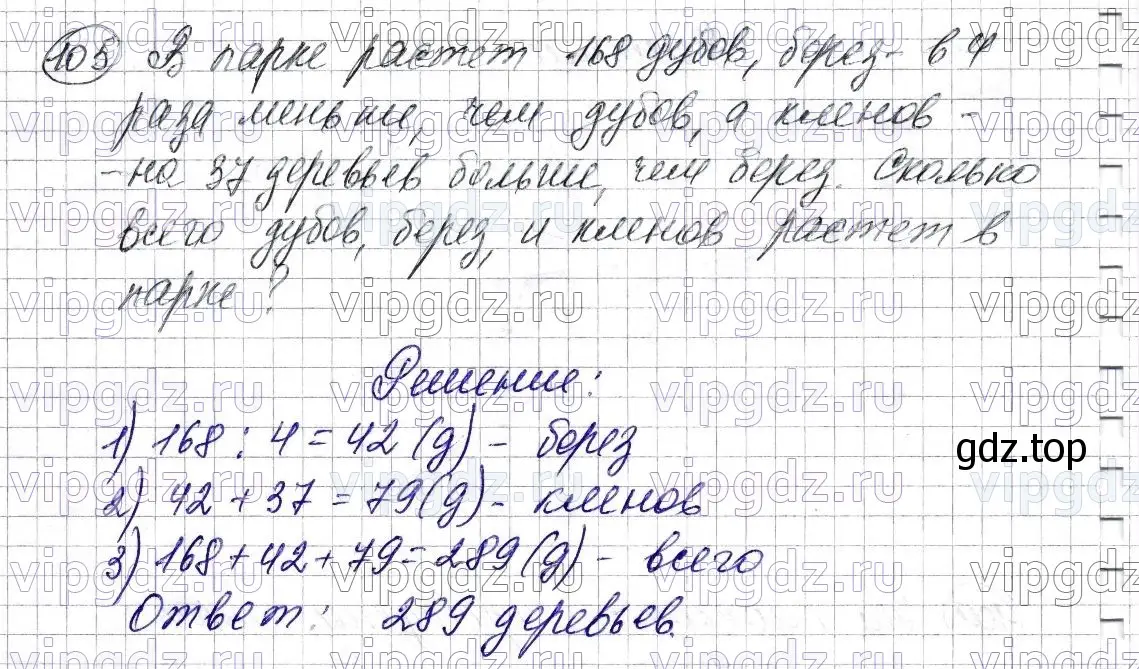 105 В парке растет 168 дубов, берез - в 4
раза меньше, чем дубов, а кленов -
- на 37 деревьев больше, чем берез. Сколько
всего дубов, берез, и кленов растет в
парке?
Решение:
1) 168 : 4 = 42 (д) - берез
gdz.top
2) 42 + 37 = 79 (д) - кленов
3) 168 + 42 + 79 = 289 (д) - всего
Ответ: 289 деревьев.
vipgdz.ru